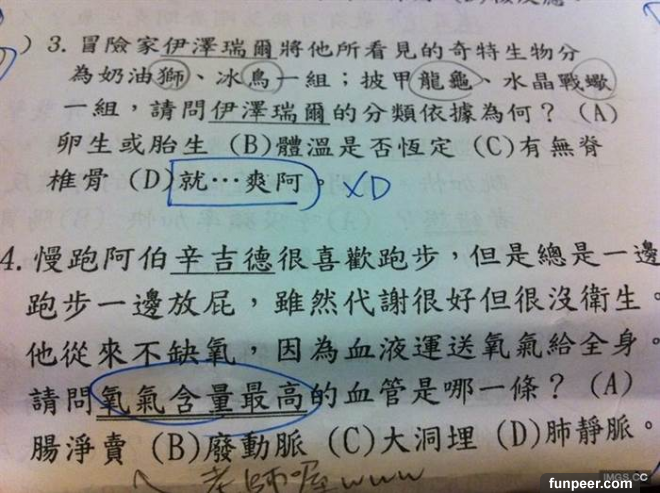 )3. 冒險家伊澤瑞爾將他所看見的奇特生物分
為奶油獅、冰鳥一組；披甲龍龜、水晶戰蠍
一組，請問伊澤瑞爾的分類依據為何？(A)
卵生或胎生 (B)體溫是否恆定 (C)有無脊
椎骨 (D)就…爽阿。 XD
4. 慢跑阿伯辛吉德很喜歡跑步，但是總是一邊
跑步一邊放屁，雖然代謝很好但很沒衛生。
他從來不缺氧，因為血液運送氧氣給全身。
請問氧氣含量最高的血管是哪一條？(A)
腸淨賣 (B)廢動脈 (C)大洞埋 (D)肺靜脈。
老師喔www
IMGS.CC
funpeer.com